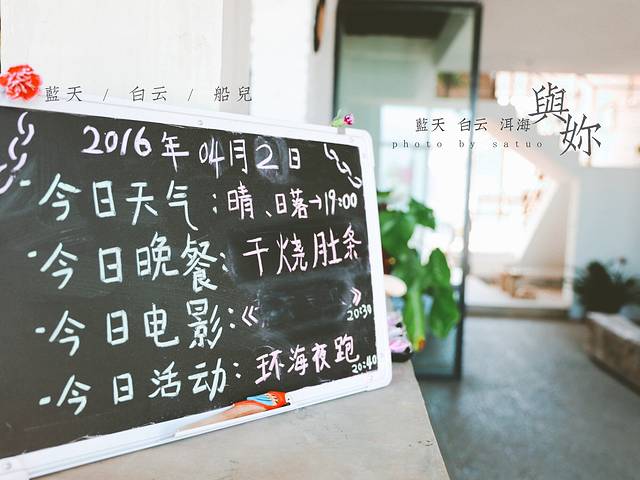 藍天 / 白云 / 船兒
藍天 白云 洱海
與妳
photo by satuo
2016年04月2日
-今日天气:晴、日落→19:00
-今日晚餐:干烧肚条
-今日电影:《 》
20:30
-今日活动:环海夜跑
20:40